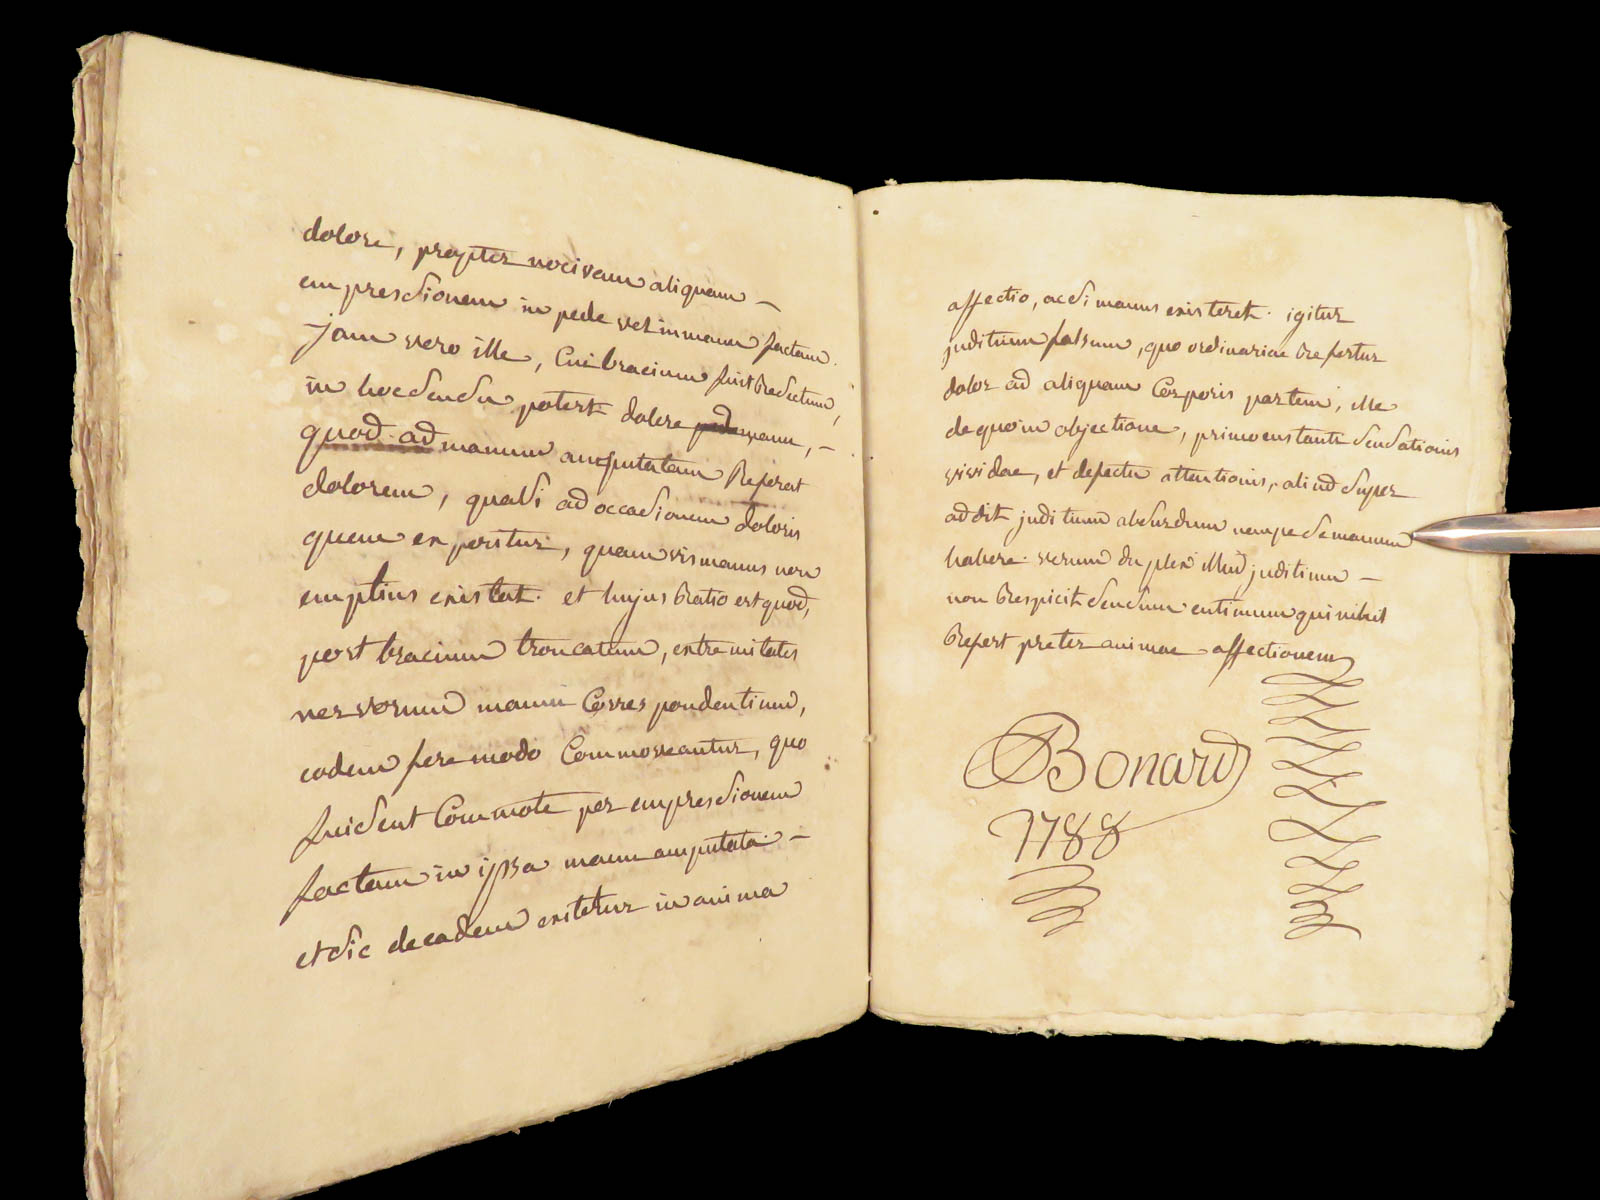 dolore, propter nocivam aliquam –
empressionem in pede vel in manu factam.
jam vero ille, Cui bracium fuit resectum,
in hoc sensu potest dolere manu, –
quod ad manum amputatam Referat
dolorem, quasi ad occasionem doloris
quem experitur, quamvis manus non
amplius existat. et hujus ratio est quod,
post bracium troncatum, extremitates
nervorum manui Correspondentium,
eadem fere modo Commoveantur, quo
fuissent Commote per empressionem
factam in ipsa manu amputata. –
et sic de eadem exitetur in anima
affectio, ac si manus existeret. igitur
juditium falsum, quo ordinariae refertur
dolor ad aliquam Corporis partem, ille
de quo in objectione, primo enstante sensationis
vividae, et defectu attentionis, aliud super
addit juditium absurdum nempe se manum
habere. verum duplex illud juditium –
non Respicit sensum entimum qui nihil
Refert preter animae affectionem
Bonard
1788